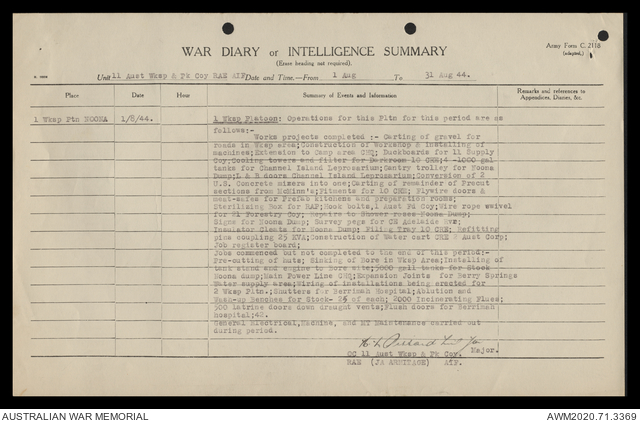 WAR DIARY or INTELLIGENCE SUMMARY
(Erase heading not required).
Army Form C. 2118
(adapted).
Unit 11 Aust Wksp & Pk Coy RAE AIF Date and Time.—From 1 Aug To 31 Aug 44.
Place Date Hour Summary of Events and Information Remarks and references to Appendices, Diaries, &c.
1 Wksp Ptn NOONA 1/8/44. 1 Wksp Platoon: Operations for this Pltn for this period are as
follows:-
Works projects completed :- Carting of gravel for
roads in Wksp area;Construction of Workshop & installing of
machines;Extension to Camp area CHQ; Duckboards for 11 Supply
Coy;Cooling towers and filter for Darkroom 10 CRE;4 -1000 gal
tanks for Channel Island Leprosarium;Gantry trolley for Noona
Dump;L & B doors Channel Island Leprosarium;Conversion of 2
U.S. Concrete mixers into one;Carting of remainder of Precut
sections from McMinn's;Fitments for 10 CRE; Flywire doors &
meat-safes for Prefab kitchens and preparation rooms;
Sterilising Box for RAP;Hook bolts,1 Aust Fd Coy;Wire rope swivel
for 21 Forestry Coy; Repairs to Shower roses Noona Dump;
Signs for Noona Dump; Survey pegs for CE Adelaide Rvr;
Insulator Cleats for Noona Dump; Filing Tray 10 CRE; Refitting
pins coupling 25 KVA;Construction of Water cart CRE Aust Corp;
Job register board;
Jobs commenced but not completed to the end of this period:-
Pre-cutting of huts; Sinking of Bore in Wksp Area;Installing of
tank stand and engine to Bore site;5000 gall tanks for Stock
Noona dump;Main Power Line CHQ;Expansion Joints for Berry Springs
Water supply area;Wiring of installations being erected for
2 Wksp Pltn.;Shutters for Berrimah Hospital;Ablution and
Wash-up Benches for Stock- 25 of each; 2000 Incinerating Flues;
500 latrine doors down draught vents;Flush doors for Berrimah
Hospital;42.
General Electrical,Machine, and MT Maintenance carried out
during period.
Major.
OC 11 Aust Wksp & Pk Coy.
RAE (JA ARMITAGE) AIF.
AUSTRALIAN WAR MEMORIAL
AWM2020.71.3369